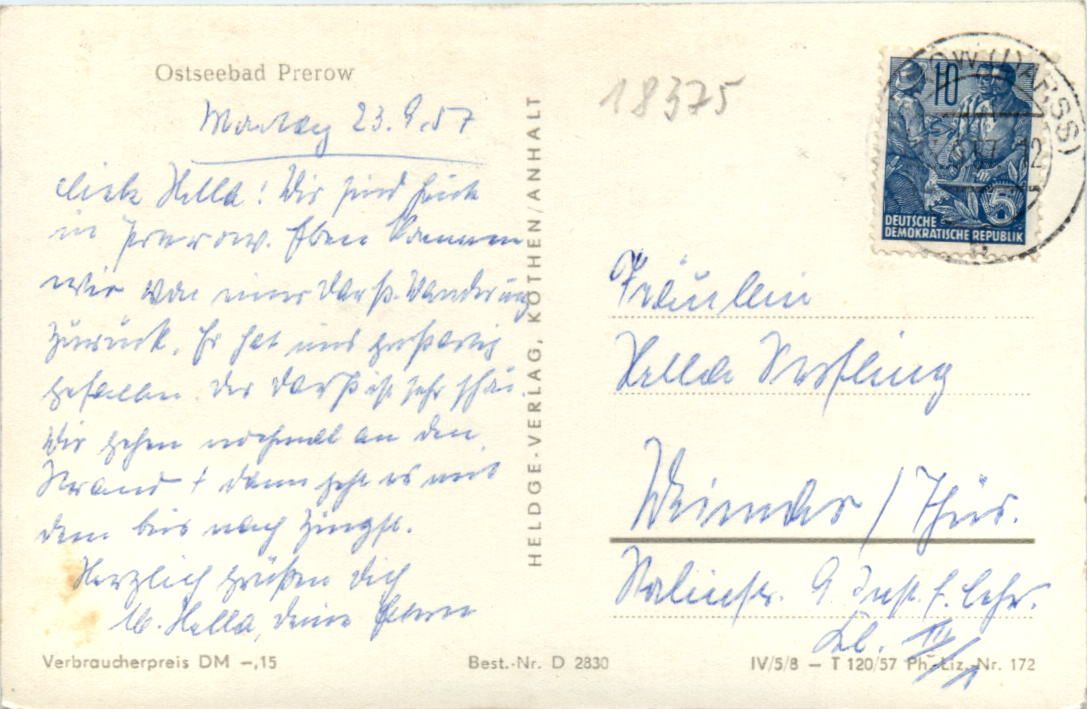 Ostseebad Prerow
18375
Montag 23.9.57
Liebe Hella! Wir sind heute
in Prerow. Eben kamen
wir von einer Darß-Wanderung
zurück. Er hat uns großartig
gefallen. Der Darß ist sehr schön.
Wir gehen nochmal an den
Strand + dann geht es mit
dem bus nach Zingst.
Herzlich grüßen Dich
lb. Hella, deine Eltern
HELDGE-VERLAG, KÖTHEN/ANHALT
10
5
DEUTSCHE
DEMOKRATISCHE REPUBLIK
OW (DARSS)
Fräulein
Hella
Weimar / Thür.
9 Inst. f. Lehr.
Verbraucherpreis DM -,15
Best.-Nr. D 2830
IV/5/8 – T 120/57 Ph.-Liz.-Nr. 172